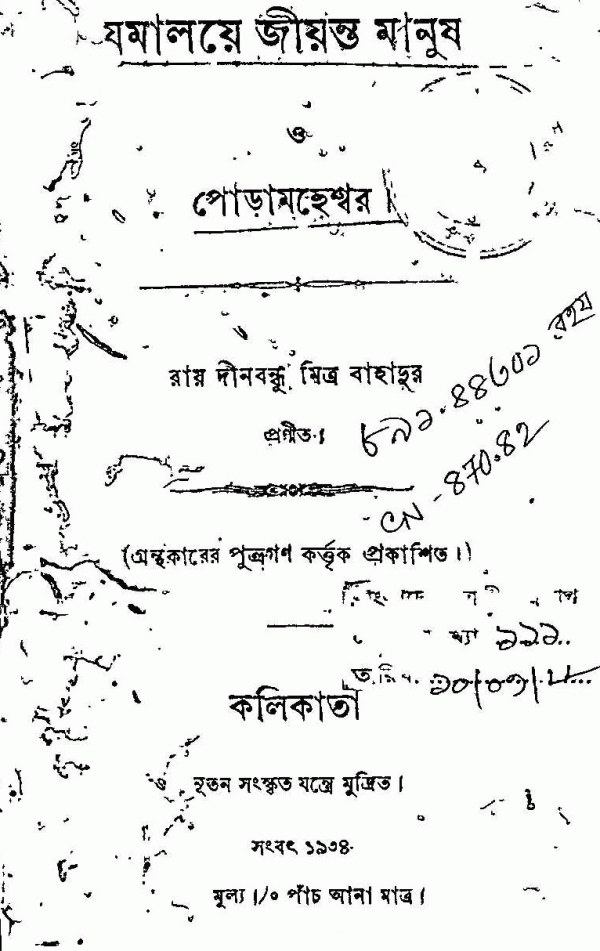 যমালয়ে জীয়ন্ত মানুষ
ও
পোড়ামহেশ্বর।
রায় দীনবন্ধু মিত্র বাহাদুর
প্রণীত।
৮৯১.৪৪৩০১
CN-870.82
(গ্রন্থকারের পুত্রগণ কর্ত্তৃক প্রকাশিত।)
কলিকাতা
নূতন সংস্কৃত যন্ত্রে মুদ্রিত।
সংবৎ ১৯৩৪
মূল্য ।/০ পাঁচ আনা মাত্র।